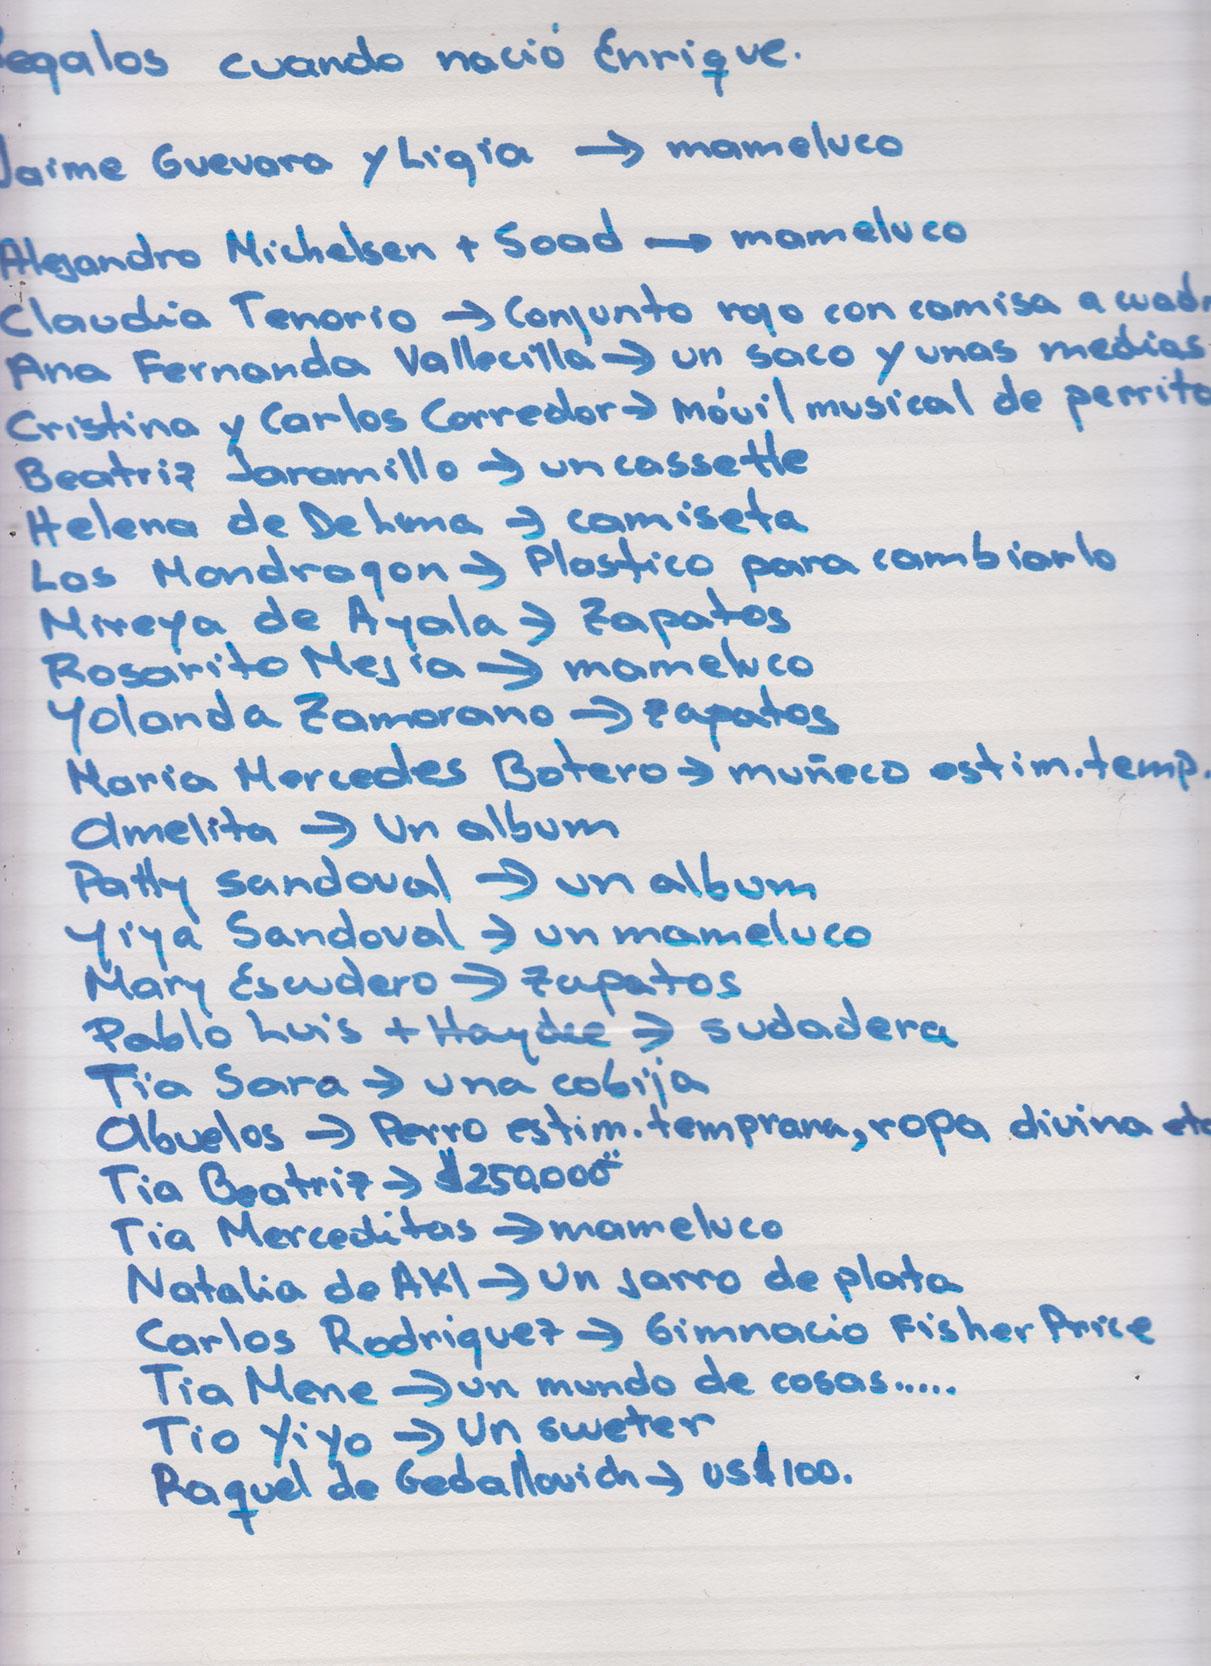 Regalos cuando nació Enrique.
Jaime Guevara y Ligia → mameluco
Alejandro Michelsen + Soad → mameluco
Claudia Tenorio → Conjunto rojo con camisa a cuadr
Ana Fernanda Vallecilla → un saco y unas medias
Cristina y Carlos Corredor → móvil musical de perrito
Beatriz Jaramillo → un cassette
Helena de De Lima → camiseta
Los Mondragon → Plastico para cambiarlo
Mireya de Ayala → Zapatos
Rosarito Mejia → mameluco
Yolanda Zamorano → zapatos
Maria Mercedes Botero → muñeco estim.temp.
Amelita → Un album
Patty Sandoval → un album
Yiya Sandoval → un mameluco
Mary Escudero → zapatos
Pablo Luis + Haydee → sudadera
Tia Sara → una cobija
Abuelos → Perro estim.temprana, ropa divina etc
Tia Beatriz → $250.000
Tia Merceditas → mameluco
Natalia de AKL → Un jarro de plata
Carlos Rodriguez → Gimnacio Fisher Price
Tia Mene → un mundo de cosas.....
Tio Yiyo → Un sweter
Raquel de Gedallovich → US$100.